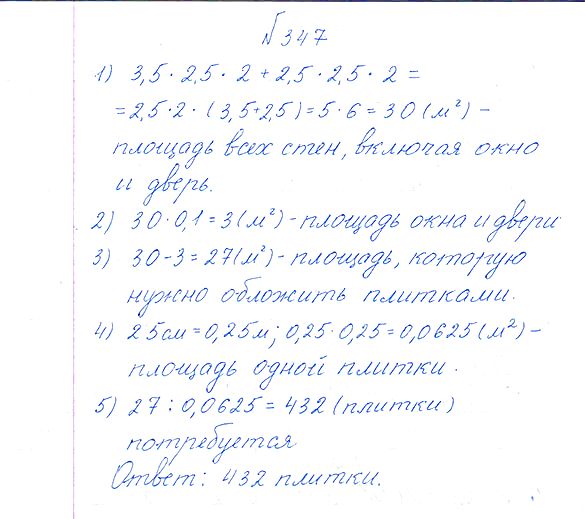 №347
1) 3,5 · 2,5 · 2 + 2,5 · 2,5 · 2 =
= 2,5 · 2 · (3,5+2,5) = 5 · 6 = 30 (м²) –
площадь всех стен, включая окно
и дверь.
2) 30 · 0,1 = 3(м²) - площадь окна и двери
3) 30 - 3 = 27(м²) - площадь, которую
нужно обложить плитками.
4) 25см = 0,25м; 0,25 · 0,25 = 0,0625(м²) –
площадь одной плитки.
5) 27 : 0,0625 = 432 (плитки)
потребуется
Ответ: 432 плитки.